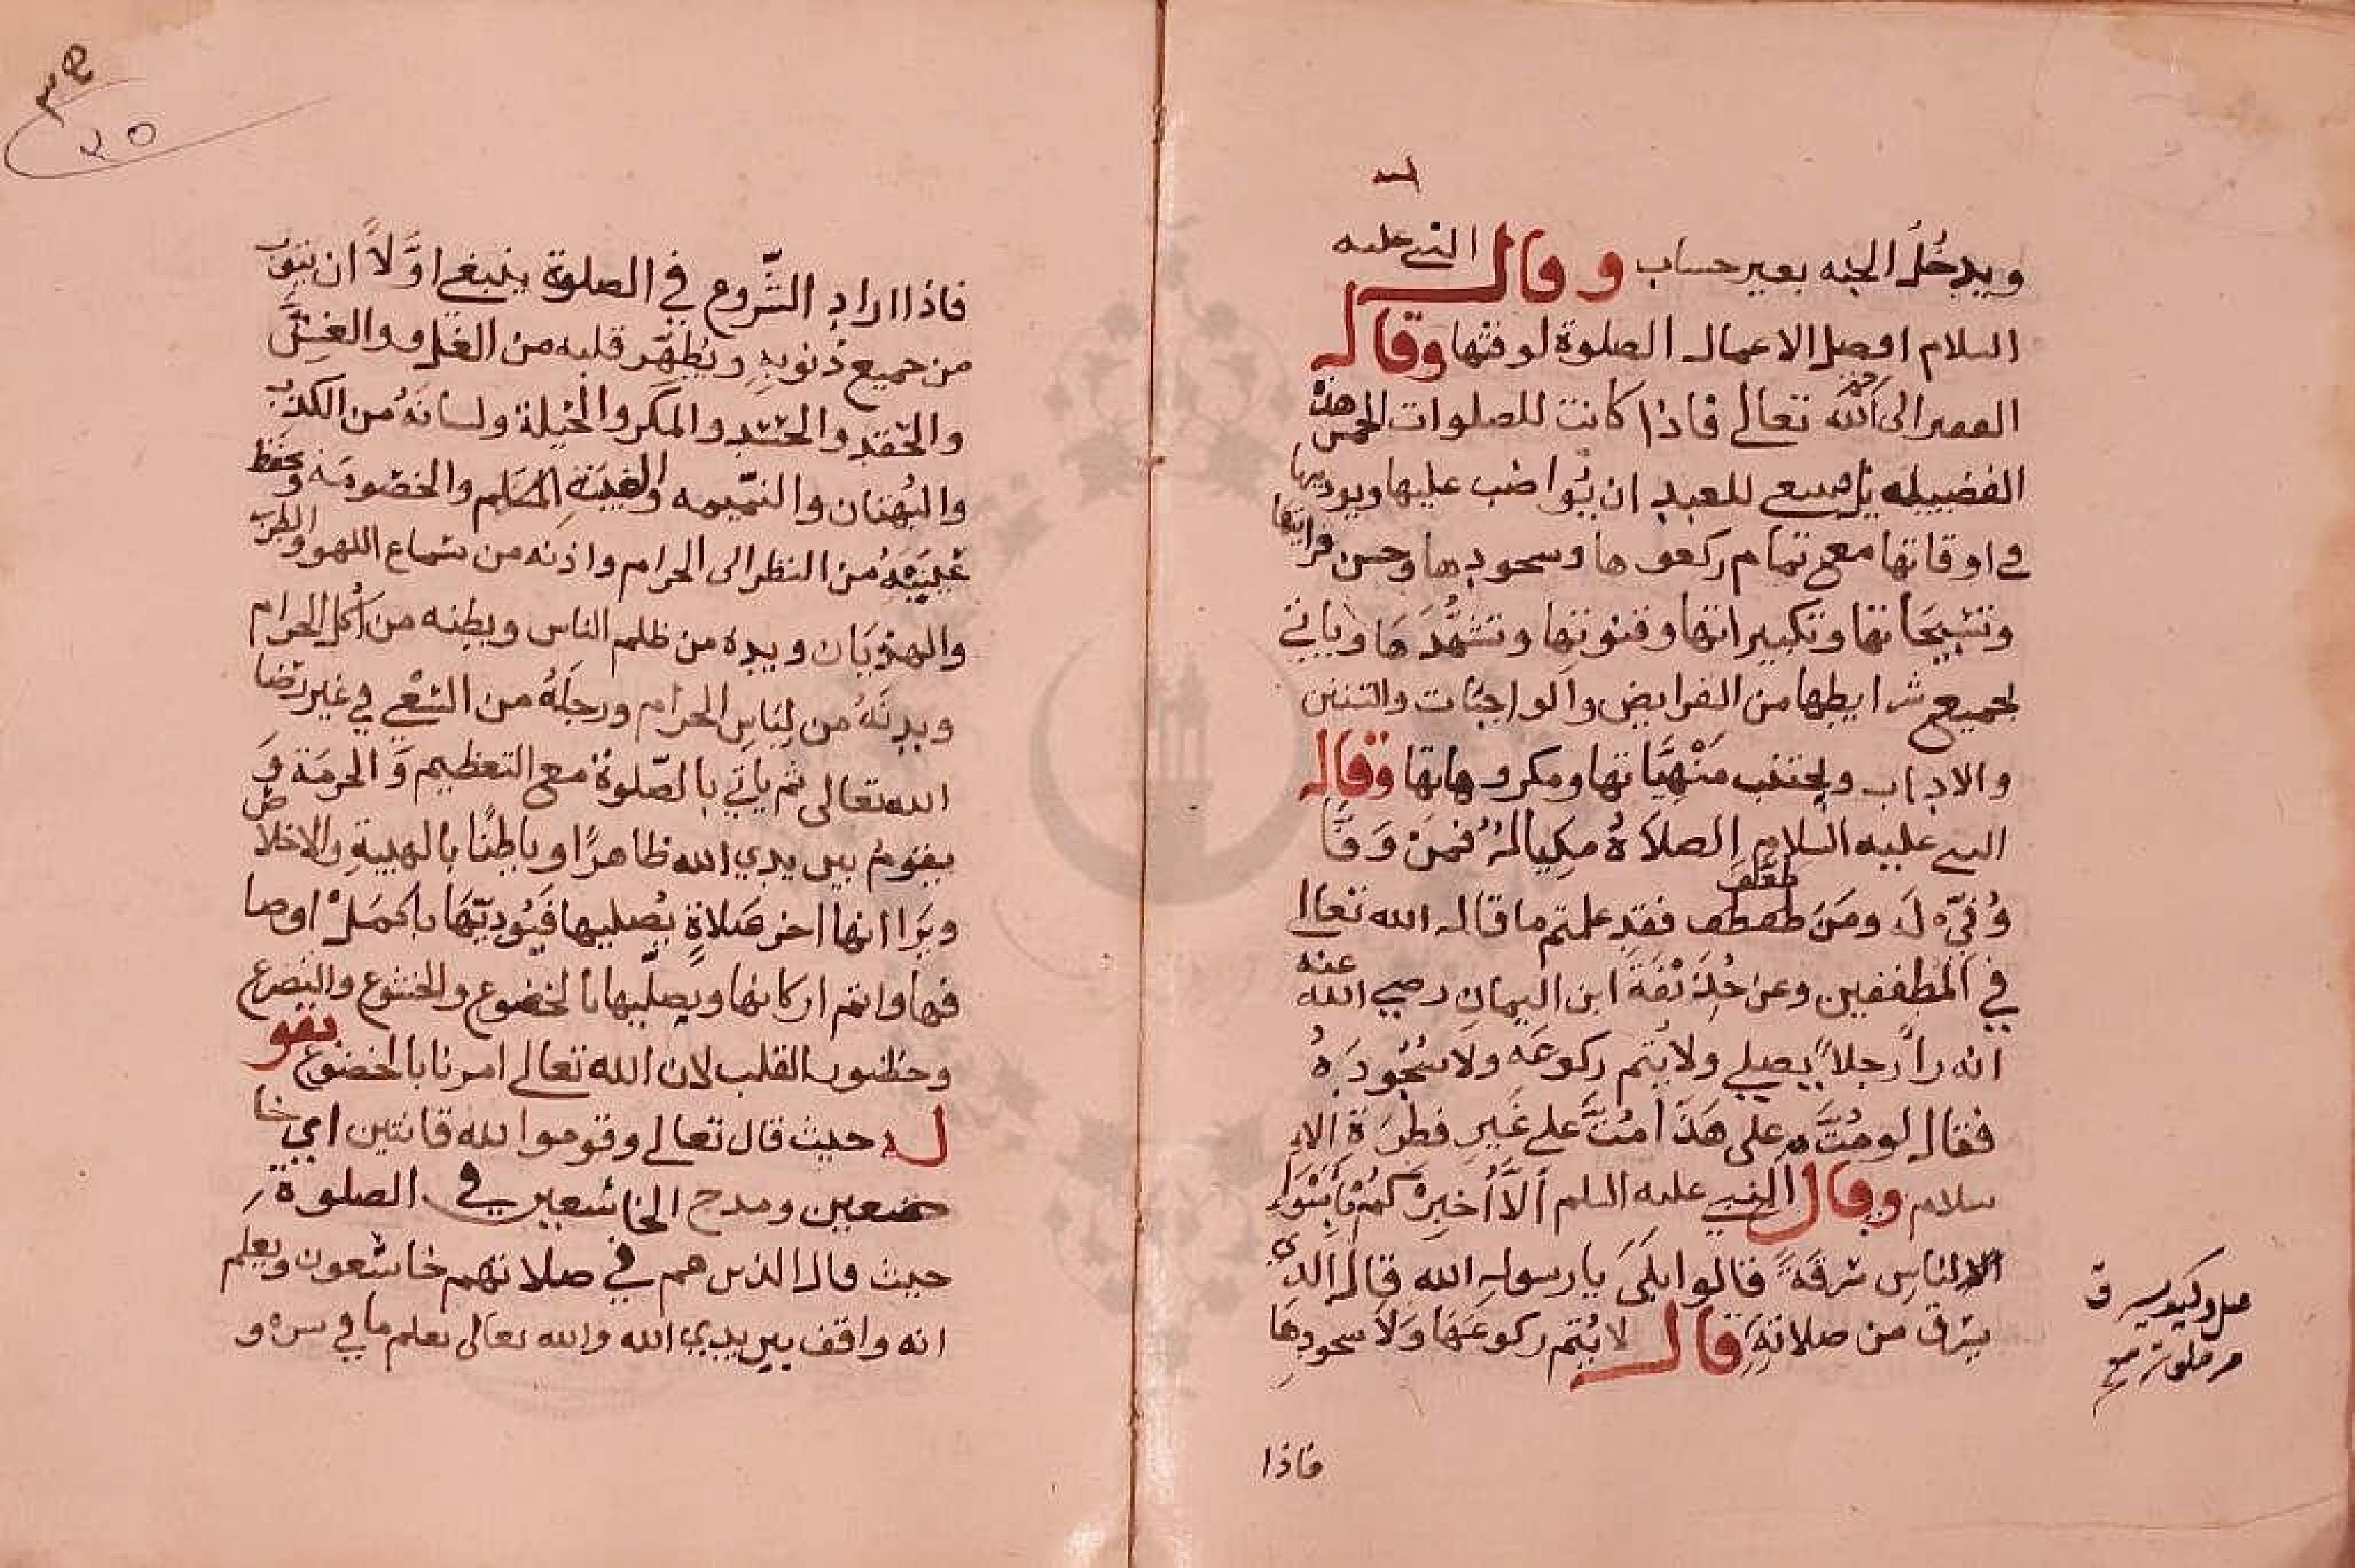 ويدخُلُ الجنه بغير حساب وقال النبى عليه
السلام افضل الاعمال الصلوة لوقتها وقال
الى الله تعالى فاذا كانت للصلوات الخمس هذه
الفضيله للعبد ان يُواضب عليها ويوديها
فى اوقاتها مع تمام ركعوها وسجودها وحسن قراتها
وتسبيحَاتها وتكبيراتها وقنوتها وتشهُّدَها ويأتى
بجميع شرايطها من الفرايض والواجبات والسنن
والاداب ويجتنب مَنْهيَّاتها ومكروهاتها وقال
النبى عليه السلام الصلاَةُ مكيالٌ فمَنْ وَفَّا
وُفىّ لَه ومَنَ طفف فقد علمتم ما قال الله تعالا
فى المطففين وعن حُذَيْفَةَ ابن اليمانِ رضى الله عنه
انه راَ رجلاً يصلى ولا يُتم ركوعَه ولا سُجُودَهُ
فقال لو مُتَّ على هَذَا مُتَّ على غَيرِ فطرَةِ الاِ
سلام وقال النبى عليه السلم اَلاَّ اُخبِرُكُمْ بِأَسْوَاءِ
الناسِ سَرقَةً قالوا بَلَىَ يا رسول الله قال الذى
يسرق من صلاتِهِ قال لا يُتم ركوعَهَا وَلاَ سجودِهَا
فاذا
٣٤
٣٥
فاذا اراد الشّروع فى الصلوة ينبغى اوَّلاً ان يتوب
من جميع ذنوبهِ ويُطهّر قلبه من الغل والغِشّ
والحقد والحسد والمكر والحيلة ولسانَهُ من الكذب
والبُهتان والنمّيمه والغيبَةِ والخصومَة ويحفظ
عَينَيهُ من النظر الى الحرام واذنه من سماع اللهو والطرب
والهذيَان ويده من ظلم الناس وبطنه من اُكل الحرام
وبدنَهُ من لِبَاسِ الحرام ورجلَهُ من السّعْى فى غير رضا
الله تعالى ثم ياتى بالصّلوةِ مع التعظيم وَالحرمَة وَ
يقومُ بين يدى الله ظاهرًا وباطنًا بالهيبةِ والاخلاص
ويَرَا انها اخر صَلاةٍ يُصليها فَيُوديّهَا باكمَلْ اوصا
فها واتم اركانها ويصلّيها بالخضوع والخشوع والتضرع
وحظور القلب لان الله تعالى امرنا بالخضوع بقو
له حيث قال تعالى وقوموا لله قانتين اى خا
ضعين ومدح الخاشعين فى الصلوة
حيث قال الذين هم فى صلاتهم خاشعون ويعلم
انه واقف بين يدى الله والله تعالى يعلم ما فى سره و